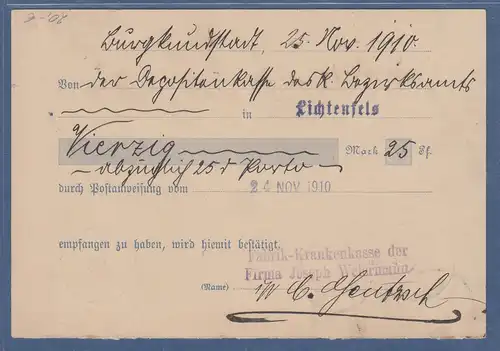 Burgkundstadt, 25. Nov. 1910.
Von der Depositenkasse des k. Bezirksamts
in Lichtenfels
Vierzig Mark 25 Pf.
– abzüglich 25 d Porto –
durch Postanweisung vom 24 NOV 1910
empfangen zu haben, wird hiemit bestätigt.
Fabrik-Krankenkasse der
Firma Joseph
(Name)